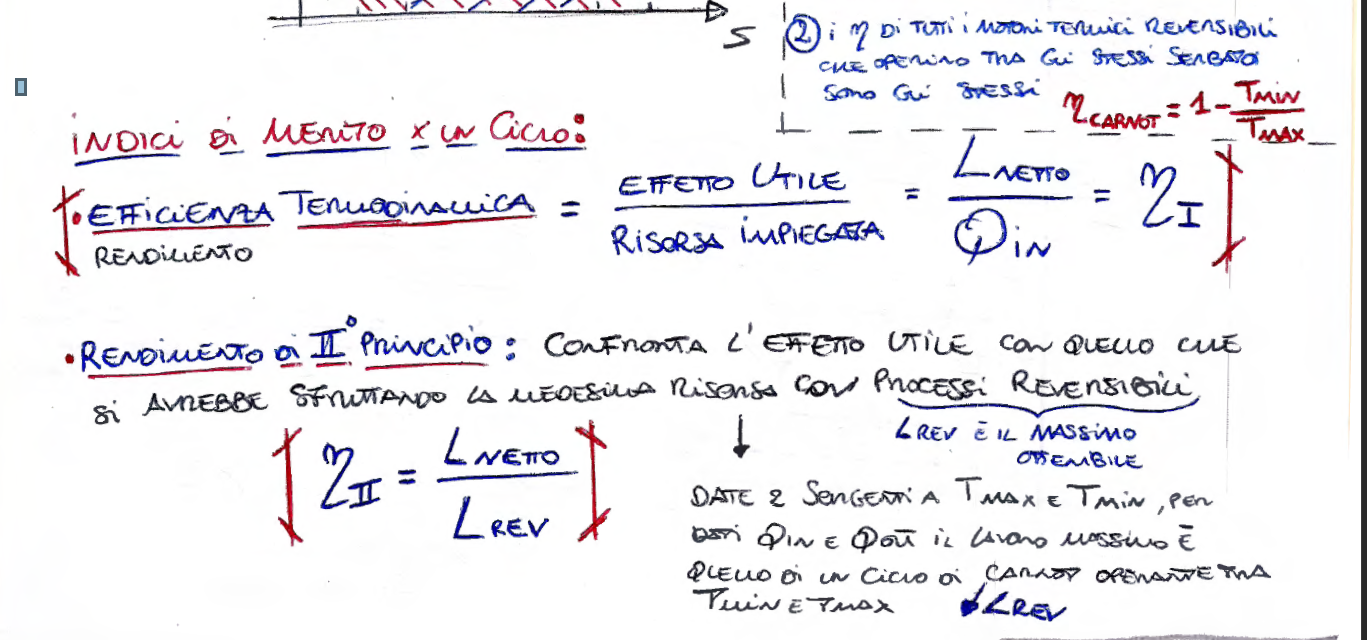 S
② i η DI TUTTI i MOTORI TERMICI REVERSIBILI
CHE OPERINO TRA GLI STESSI SERBATOI
SONO GLI STESSI
η CARNOT = 1 - TMIN / TMAX
INDICI DI MERITO X UN CICLO:
• EFFICIENZA TERMODINAMICA = EFFETTO UTILE / RISORSA IMPIEGATA = L NETTO / Q IN = η I
RENDIMENTO
• RENDIMENTO DI II° PRINCIPIO: CONFRONTA L'EFFETTO UTILE CON QUELLO CHE
SI AVREBBE SFRUTTANDO LA MEDESIMA RISORSA CON PROCESSI REVERSIBILI
↓
L REV È IL MASSIMO
OTTENIBILE
η II = L NETTO / L REV
DATE 2 SORGENTI A TMAX E TMIN, PER
DATI QIN E QOUT IL LAVORO MASSIMO È
QUELLO DI UN CICLO DI CARNOT OPERANTE TRA
TMIN E TMAX ↓ L REV